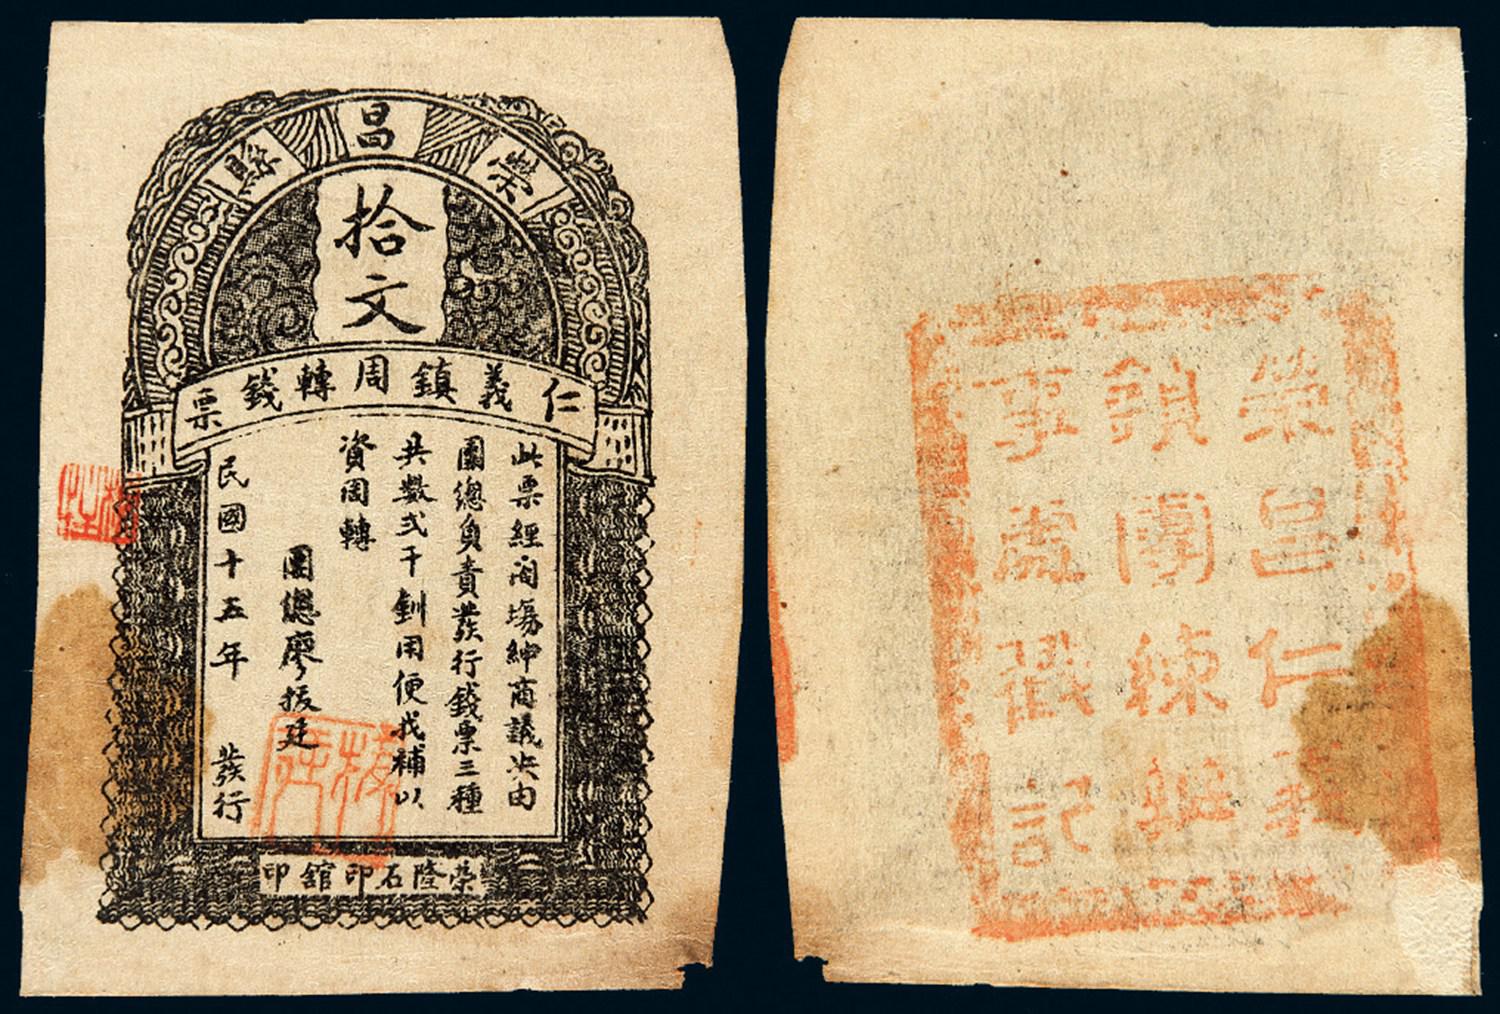 榮昌縣
拾文
仁義鎮周轉錢票
此票經閤塲紳商議決由
團總負責發行錢票三種
共數弍千釧用便找補以
資周轉
團總廖振廷
民國十五年 發行
榮隆石印館印
榮昌仁義
鎮團練辦
事處戳記